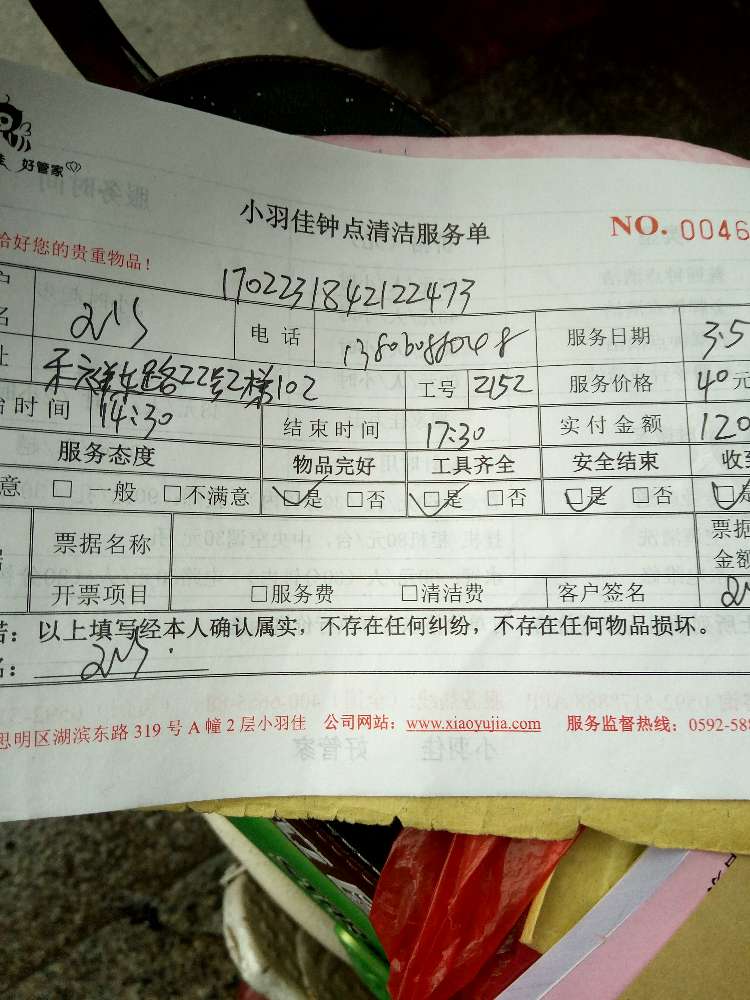 好管家
小羽佳钟点清洁服务单
NO. 0046
合好您的贵重物品！
1702231842122473
电话
服务日期 3.5
22号2梯102
工号 2152
服务价格 40元
时间 14:30
结束时间 17:30
实付金额 120
服务态度 物品完好 工具齐全 安全结束 收到
意 □ 一般 □不满意 □是 □否 □是 □否 □是 □否 □是
票据名称 票据
金额
开票项目 □服务费 □清洁费 客户签名
：以上填写经本人确认属实，不存在任何纠纷，不存在任何物品损坏。
名：
思明区湖滨东路319号A幢2层小羽佳 公司网站：www.xiaoyujia.com 服务监督热线：0592-588